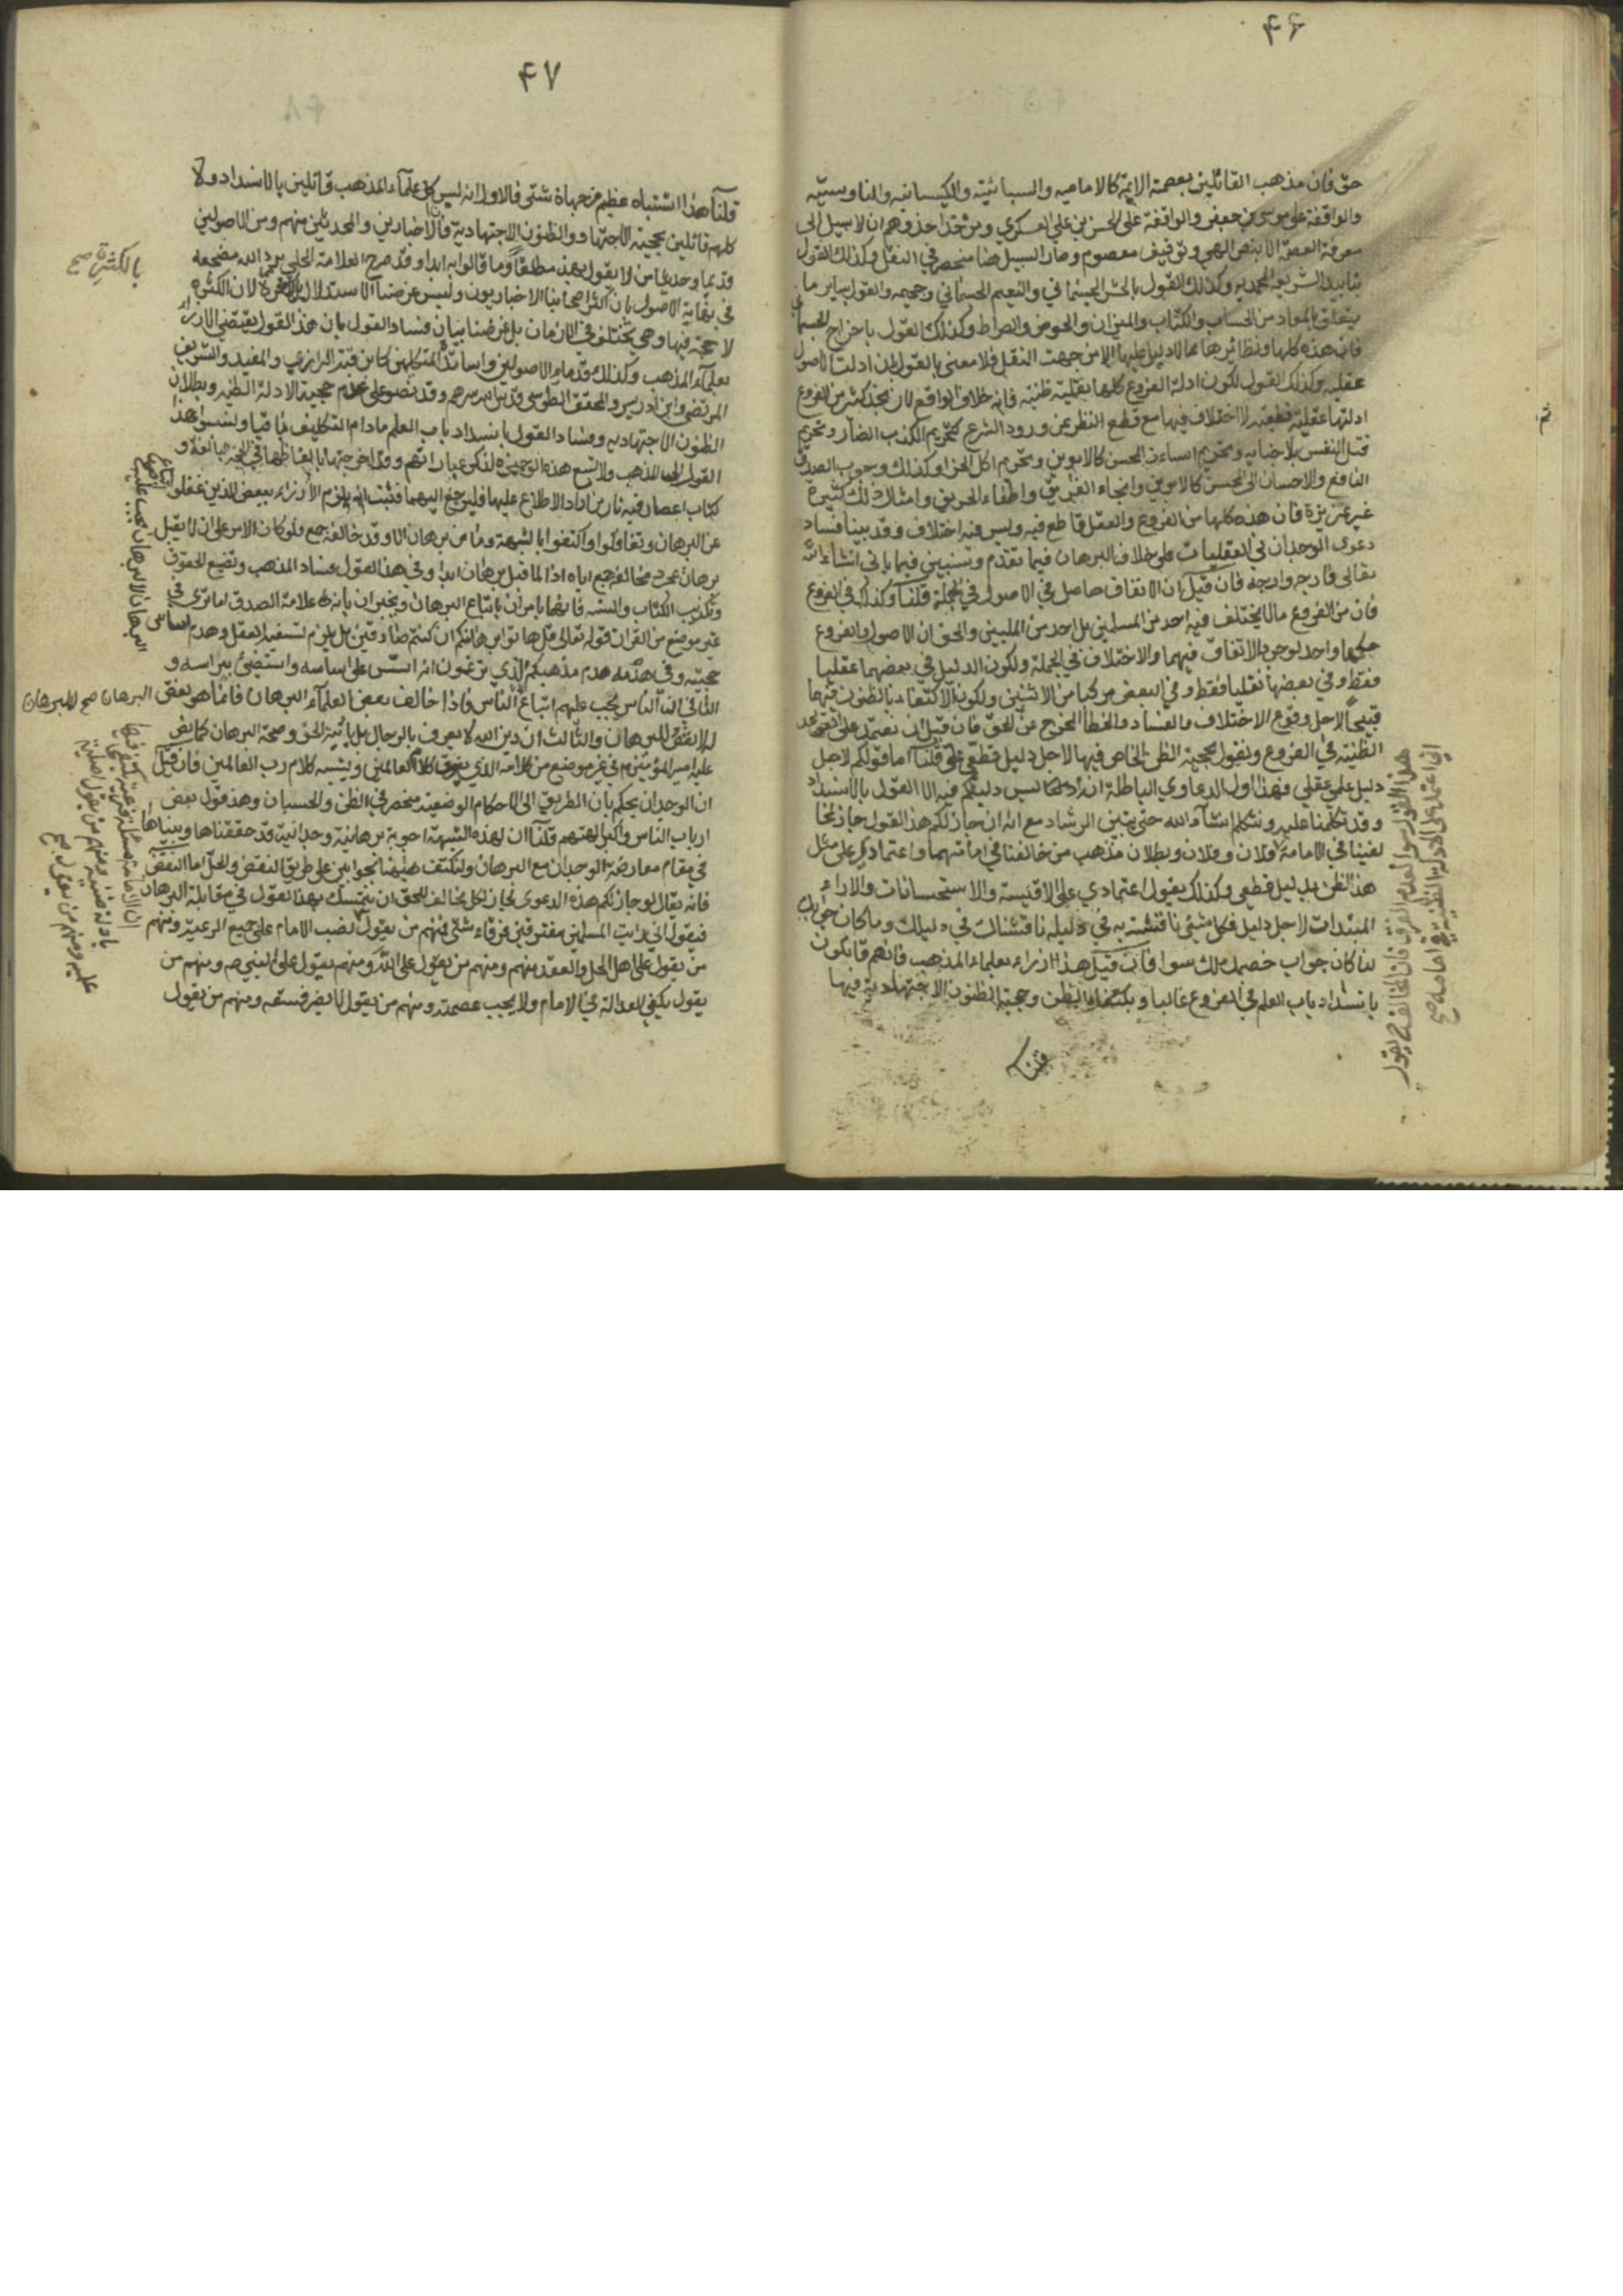 ۴۶
حق فان مذهب القائلين بعصمة الايمة كالاماميه والسبائيته والكيسانيه والناووسيته
والواقفة على موسى بن جعفر والواقفة على الحسن بن علي العسكري ومن حذا حذوهم ان لا سبيل الى
معرفة العصمة الا بنص الهي وتوقيف معصوم وصار السبيل منحصر في النقل وكذلك القول
بتابيد الشريعه المحمديه وكذلك القول بالحشر الجسماني والنعيم الجسماني وجحيمه والقول بساير ما
يتعلق بالمعاد من الحساب والكتاب والميزان والحوض والصراط وكذلك القول باخراج
فان هذه كلها ونظائرها مما لا دليل عليها الا من جهت النقل فلا معنى بالقول بان ادلت الاصول
عقليه وكذلك القول لكون ادلة الفروع كلها نقلية ظنيه فانه خلاف الواقع لانا نجد كثير من الفروع
ادلتها عقلية قطعيه لا اختلاف فيها مع قطع النظر عن ورود الشرع كتحريم الكذب الضار وتحريم
قتل النفس بلا جنايه وتحريم اساءة المحسن كالابوين وتحريم اكل الخرا وكذلك وجوب الصدق
النافع والاحسان الى المحسن كالابوين وانجاء الغريق واطفاء الحريق وامثال ذلك كثيرة
غير عزيزة فان هذه كلها من الفروع والعقل قاطع فيه وليس فيه اختلاف وقد بينا فساد
دعوى الوجدان في العقليات على خلاف البرهان فيما تقدم وسنبين فيما ياتي انشاء الله
تعالى فان قيل ان الاتفاق حاصل في الاصول في الجملة قلنا وكذلك في الفروع
فان من الفروع مالا يختلف فيه احد من المسلمين بل احد من المليين والحق ان الاصول والفروع
حكمها واحد لوجود الاتفاق فيهما والاختلاف في الجملة ولكون الدليل في بعضهما عقليا
فقط وفي بعضها نقليا فقط وفي البعض مركبا من الاثنين ولكون الاكتفاء بالظنون فيهما
قبيحا لاجل وقوع الاختلاف والفساد والخطأ المخرج عن الحق فان قيل ان نعتمد على
الظنيه في الفروع ونقول بحجية الظن الخاص فيها لاجل دليل قطعي قلنا اما قولكم لاجل
دليل علمي عقلي فهذا اول الدعاوي الباطلة ليس دليلكم فيه الا القول بالانسداد
وقد تكلمنا عليه ونتكلم انشاء الله حتى يتبين الرشاد مع انه ان جاز لكم هذا القول جاز
في الامامة فلان وفلان وبطلان مذهب من خالفنا في امامتهما واعتمادي على مثل
هذا الظن بدليل قطعي وكذلك يقول اعتمادي على الاقيسة والاستحسانات والاراء
المبتدات لاجل دليل فكل شيئ ناقشته به في دليله ناقشناك في دليلك وما كان
لنا كان جواب خصمك لك سوا فان قيل هذا ازراء بعلماء المذهب فانهم قائلون
بانسداد باب العلم في الفروع غالبا وبكفاية الظن وحجية الظنون الاجتهاديه فيها
قلنا
هذا القول سوا لعدم الفرق فان المخالف يقول
اني اعتمد على الادلة الظنية في امامة صح
ثم
۴۷
قلنا هذا اشتباه عظيم من جهاة شتى فالاول انه ليس كل علماء المذهب قائلين بالانسداد ولا
كلهم قائلين بحجية الاجتهاد والظنون الاجتهادية فان الاخباريين والمحدثين منهم ومن الاصوليين
قديما وحديثا من لا يقول بهذه مطلقا وما قالوا به ابدا وقد صرح العلامة الحلي برد الله مضجعه
في نهاية الاصول بان اكثر اصحابنا الاخباريون وليس غرضنا الاستدلال لان الكثره
لا حجة فيها وهي تختلف في الازمان بل غرضنا بيان فساد القول بان هذا القول يقتضي الازراء
بعلماء المذهب وكذلك قدماء الاصوليين واساتذ المتكلمين كابن قبة الرازي والمفيد والشريف
المرتضى وابن ادريس والمحقق الطوسي قدس سرهم وقد نصوا على عدم حجية الادلة الظنيه وبطلان
الظنون الاجتهاديه وفساد القول بانسداد باب العلم مادام التكليف باقيا ولنسبوا هذا
القول الى المذهب ولا تسع هذه الوجيزه لذكر عباراتهم وقد اخرجتها بالفاظها في
كتاب اعصار فيه نار من اراد الاطلاع عليها فليرجع اليهما فثبت انه يلزم الازراء ببعض الذين غفلوا
عن البرهان وتغافلوا واكتفوا بالشبهة وما من برهان الا وقد خالفه جمع ولو كان الامر على ان لا يقبل
برهان بمجرد مخالفة جمع اياه اذا لما قبل برهان ابدا وفي هذا القول فساد المذهب وتضيع الحقوق
وتكذيب الكتاب والسنه فانهما يامران باتباع البرهان ويخبران بانه علامة الصدق اما ترى في
غير موضع من القران قوله تعالى قل هاتوا برهانكم ان كنتم صادقين بل يلزم تسفيه العقل وهدم اساس
حجيته وفي هدمه هدم مذهبكم الذي تزعمون انه اسس على اساسه واستضئ بنبراسه و
الثاني ان الناس يجب عليهم اتباع الناس فاذا خالف بعض العلماء البرهان فانما هو نقض
له لا نقض للبرهان والثالث ان دين الله لا يعرف بالرجال بل باية الحق وصحة البرهان كما نص
عليه امير المؤمنين في غير موضع من كلامه الذي يفوق كلام العالمين ويشبه كلام رب العالمين فان قيل
ان الوجدان يحكم بان الطريق الى الاحكام الوضعية منحصر في الظن والحسبان وهذا قول بعض
ارباب الناس واكبر الهتهم قلنا ان لهذه الشبهة اجوبة برهانية وحدانية قد حققناها وبيناها
في مقام معارضة الوجدان مع البرهان ولنكتف هيهنا بجوابين على طريق النقض والحل اما النقض
فانه يقال لو جاز لكم هذه الدعوى لجاز لكل مخالف للحق ان يتمسك بهذا القول في مقابلة البرهان
فيقول اني رايت المسلمين مفترقين فرقاء شتى فمنهم من يقول نصب الامام على جميع الرعية ومنهم
من يقول على اهل الحل والعقد منهم ومنهم من يقول على الله ومنهم يقول على النبي ص ومنهم من
يقول يكفي العدالة في الامام ولا يجب عصمته ومنهم من يقول لا يضر فسقه ومنهم من يقول
بالكثرة صح
البرهان صح للبرهان
ان الامامة مسئلة فرعية يكتفي فيها
عليه ومنهم من يقول صح